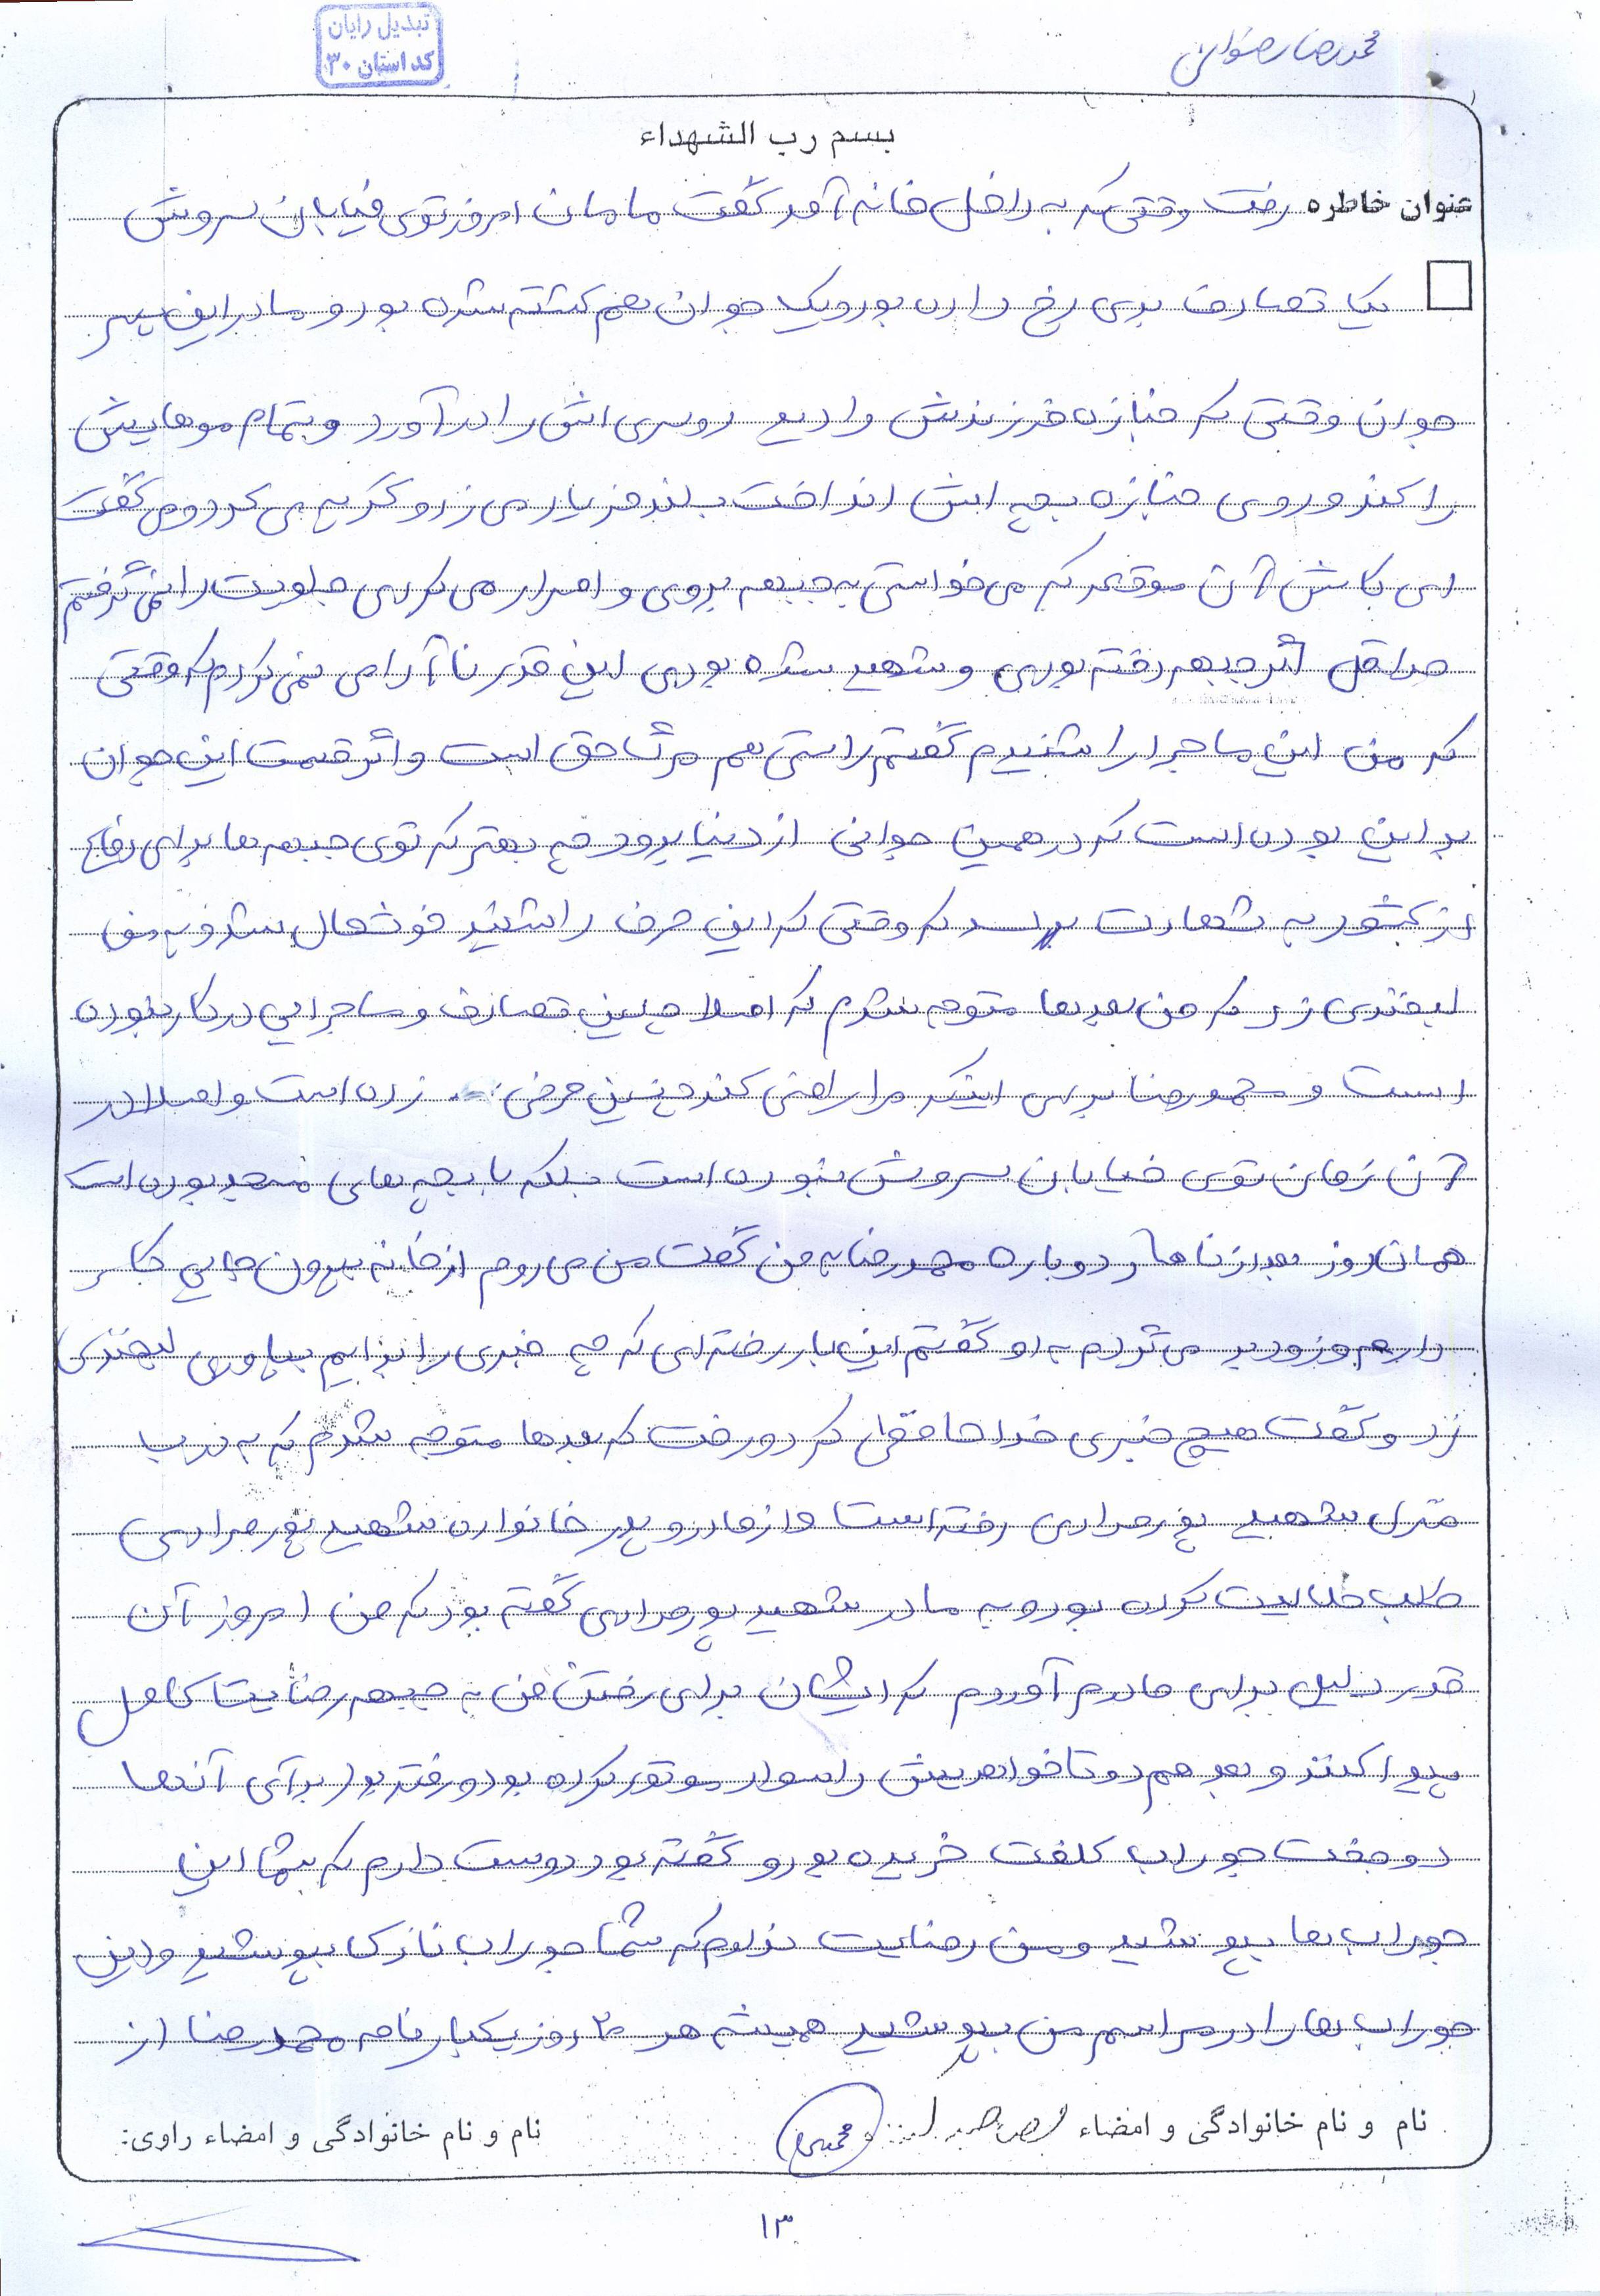 تبدیل رایان
کد استان ۳۰
محمدرضا رضوانی
بسم رب الشهداء
عنوان خاطره رفت وقتی که به داخل خانه آمد گفت مامان امروز توی خیابان سروش
یک تصادف بدی رخ داده بود و یک جوان هم کشته شده بود و مادر این پسر
جوان وقتی که جنازه فرزندش را دید روسری اش را درآورد و تمام موهایش
را کند و روی جنازه بچه اش انداخت بلند فریاد می زد و گریه می کرد و می گفت
ای کاش آن موقعی که می خواستی به جبهه بروی و اصرار می کردی جلویت را نمی گرفتم
حداقل اگر جبهه رفته بودی و شهید شده بودی این قدر ناآرامی نمی کردم که وقتی
که من این ماجرا را شنیدم گفتم راستی هم مرگ حق است و اگر قسمت این جوان
بر این بوده است که در همین جوانی از دنیا برود چه بهتر که توی جبهه ها برای دفاع
از کشور به شهادت برسد که وقتی که این حرف را شنید خوشحال شد و به من
لبخندی زد که من بعدها متوجه شدم که اصلا چنین تصادف و ماجرایی در کار نبوده
است و محمدرضا برای اینکه مرا راضی کند چنین حرفی زده است و اصلا در
آن زمان توی خیابان سروش نبوده است بلکه با بچه های مسجد بوده است
همان روز بعد از ناهار دوباره محمدرضا به من گفت من می روم از خانه بیرون جایی کار
دارم و زود بر می گردم به او گفتم این بار رفته ای که چه خبری را برایم بیاوری لبخندی
زد و گفت هیچ خبری خداحافظی کرد و رفت که بعدها متوجه شدم که به درب
منزل شهید پورمرادی رفته است و از مادر و پدر خانواده شهید پورمرادی
طلب حلالیت کرده بود و به مادر شهید پورمرادی گفته بود که من امروز آن
قدر دلیل برای مادرم آوردم که ایشان برای رفتن من به جبهه رضایت کامل
پیدا کنند و بعد هم دو تا خواهرش را سوار موتور کرده بود و رفته بود برای آنها
دو جفت جوراب کلفت خریده بود و گفته بود دوست دارم که شما این
جوراب ها بپوشید و من رضایت ندارم که شما جوراب نازک بپوشید و این
جوراب ها را در مراسم من بپوشید همیشه هر ۲۰ روز یکبار نامه محمدرضا از
نام و نام خانوادگی و امضاء
نام و نام خانوادگی و امضاء راوی:
۱۳